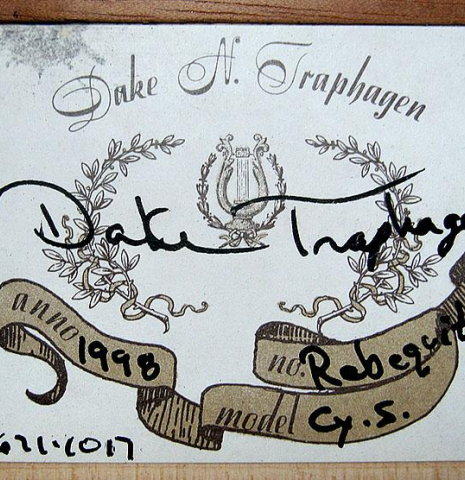 Dake N. Traphagen
Dake Traphage
anno 1998
no. Rebequit
model